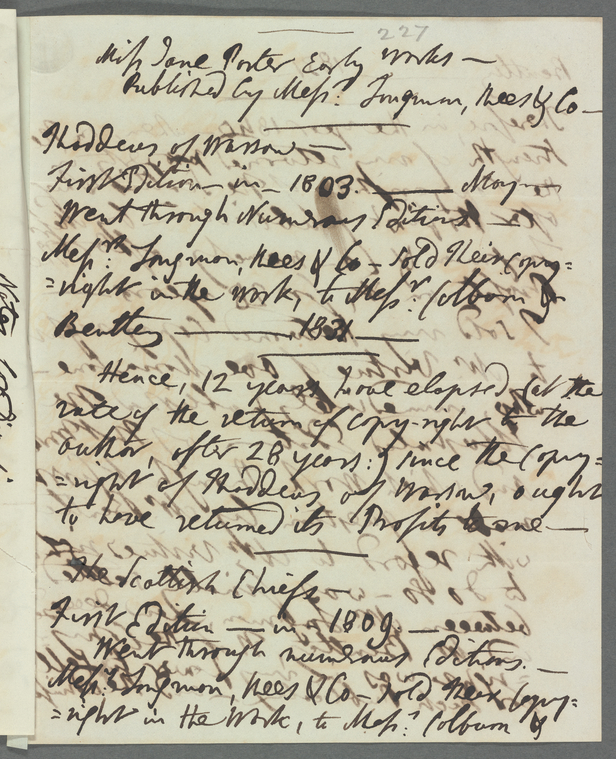 227
Miss Jane Porter Early Works —
Published by Messrs. Longman, Rees & Co —
Thaddeus of Warsaw —
First Edition — in — 1803 — May —
Went through Numerous Editions —
Messrs. Longman, Rees & Co — sold their copy=
=right in the work, to Messrs. Colburn &
Bentley — 1831 —
Hence, 12 years, have elapsed (at the
rate of the return of copy-right to the
author, after 28 years:) since the copy=
=right of Thaddeus of Warsaw, ought
to have returned its Profits to me —
The Scottish Chiefs
First Edition — in — 1809 —
Went through numerous Editions. —
Messrs. Longman, Rees & Co — sold their copy=
=right in the Work, to Messrs. Colburn &